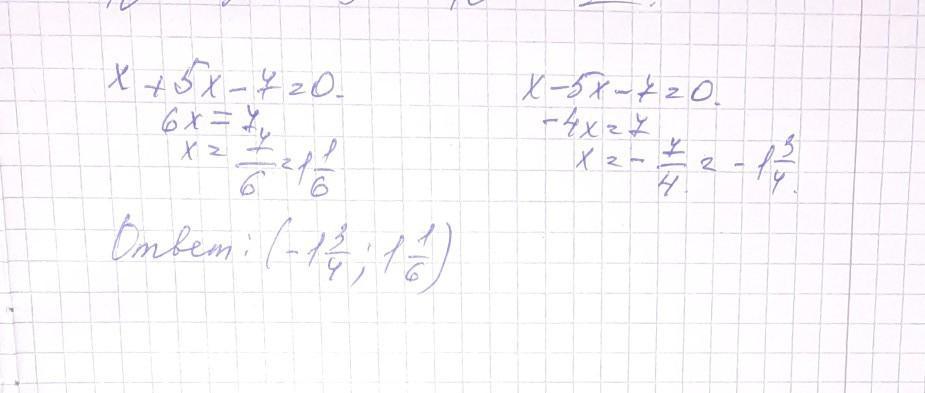 x + 5x - 7 = 0.
6x = 7
x = 7/6 = 1 1/6
x - 5x - 7 = 0.
-4x = 7
x = - 7/4 = - 1 3/4.
Ответ: (-1 3/4; 1 1/6)